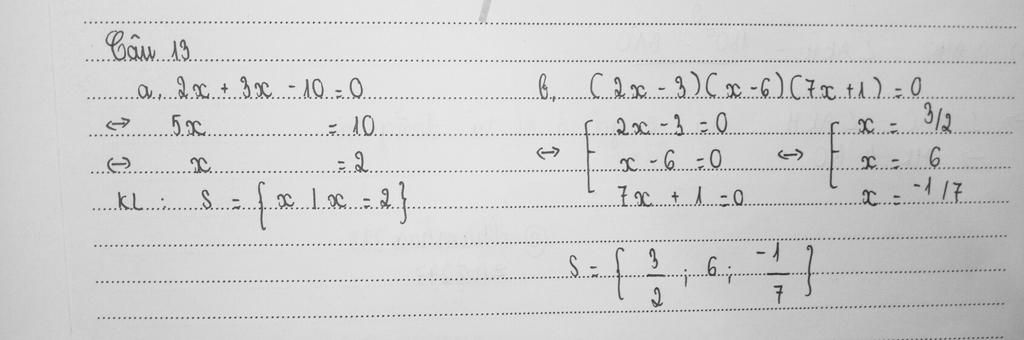 Câu 13
a, 2x + 3x - 10 = 0
<-> 5x = 10
<-> x = 2
KL : S = { x | x = 2 }
b, ( 2x - 3 ) ( x - 6 ) ( 7x + 1 ) = 0
<-> [ 2x - 3 = 0 <-> [ x = 3/2
x - 6 = 0 x = 6
7x + 1 = 0 x = -1/7
S = { 3/2 ; 6 ; -1/7 }